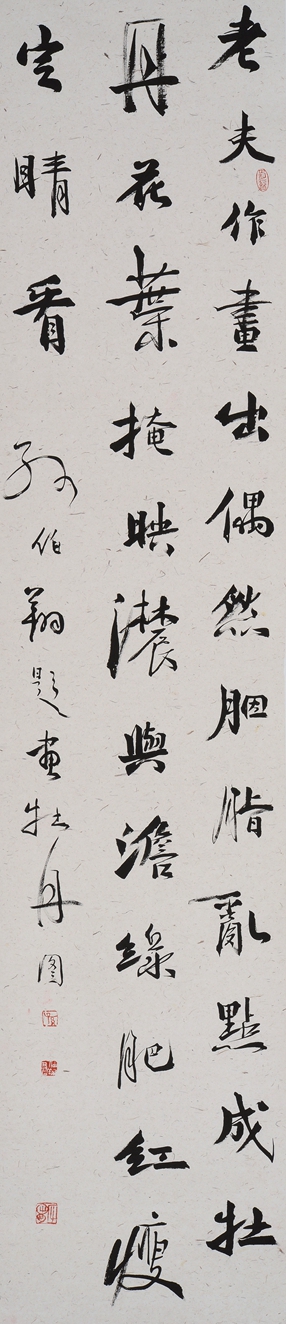 老夫作畫出偶然胭脂亂點成牡
丹花葉掩映濃與澹綠肥紅瘦
空晴看 孫伯翔題畫牡丹圖